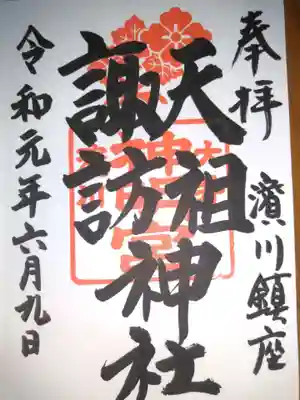 奉拝
濱川鎮座
天祖神社
諏訪
令和元年六月九日